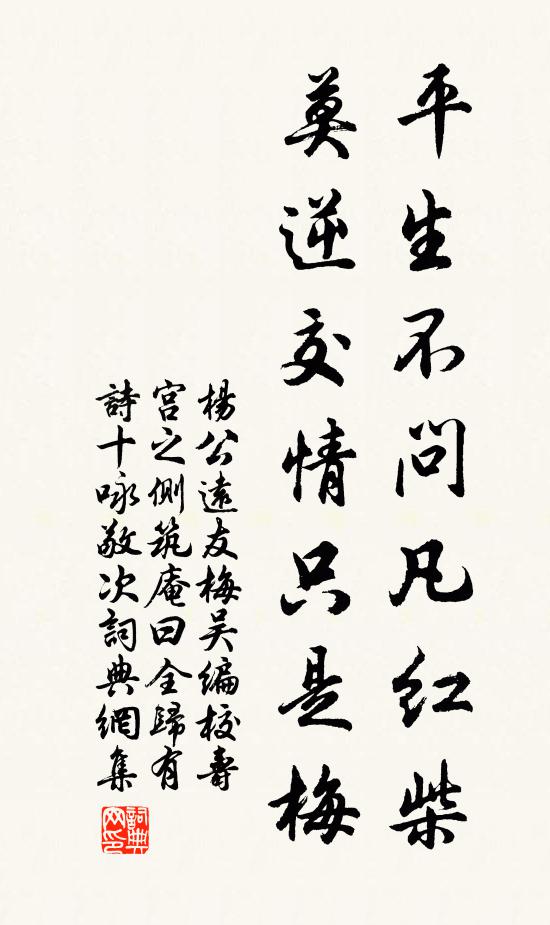 平生不問凡紅柴
莫逆交情只是梅
楊公遠友梅吴編校壽
宫之側筑庵曰全歸有
詩十咏敬次詞典網集
詞典
网印